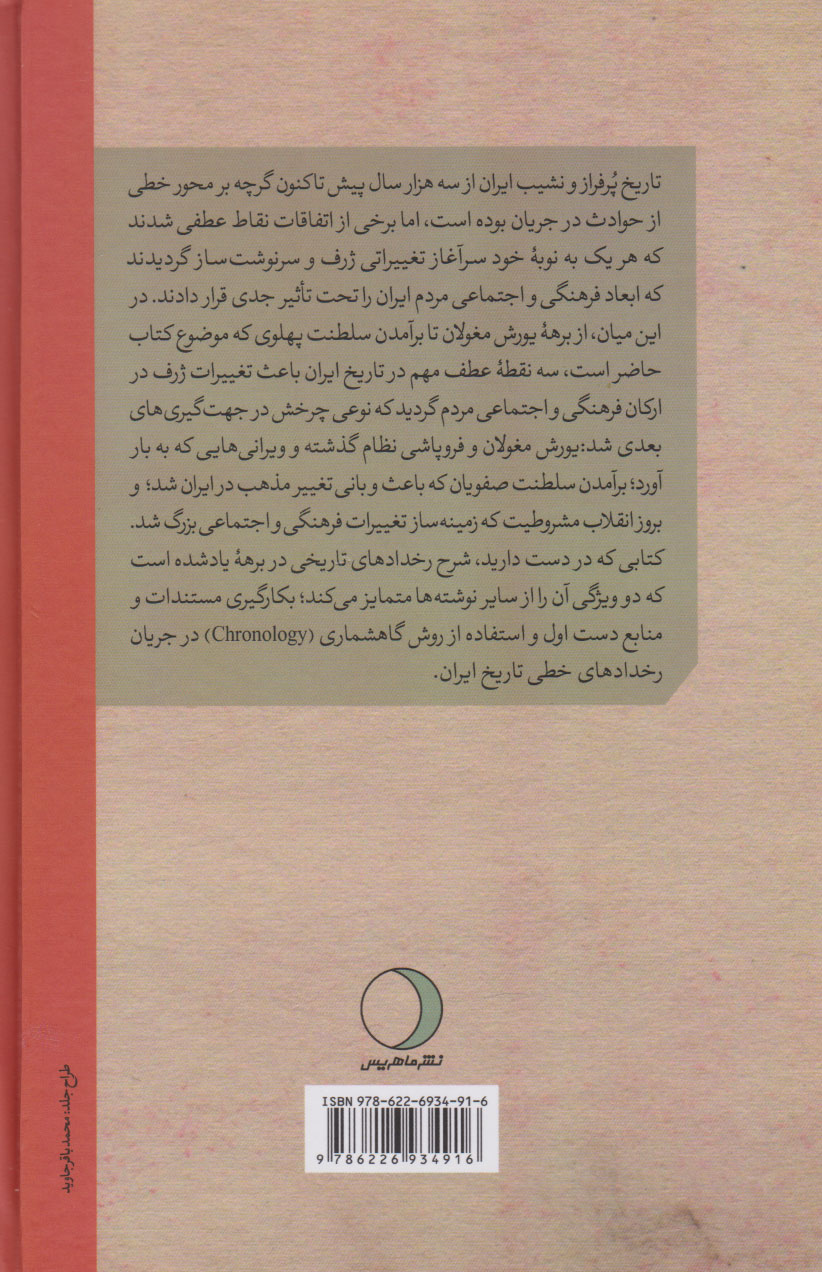 تاریخ پُرفراز و نشیب ایران از سه هزار سال پیش تاکنون گرچه بر محور خطی
از حوادث در جریان بوده است، اما برخی از اتفاقات نقاط عطفی شدند
که هر یک به نوبهٔ خود سرآغاز تغییراتی ژرف و سرنوشت‌ساز گردیدند
که ابعاد فرهنگی و اجتماعی مردم ایران را تحت تأثیر جدی قرار دادند. در
این میان، از برههٔ یورش مغولان تا برآمدن سلطنت پهلوی که موضوع کتاب
حاضر است، سه نقطهٔ عطف مهم در تاریخ ایران باعث تغییرات ژرف در
ارکان فرهنگی و اجتماعی مردم گردید که نوعی چرخش در جهت‌گیری‌های
بعدی شد: یورش مغولان و فروپاشی نظام گذشته و ویرانی‌هایی که به بار
آورد؛ برآمدن سلطنت صفویان که باعث و بانی تغییر مذهب در ایران شد؛ و
بروز انقلاب مشروطیت که زمینه‌ساز تغییرات فرهنگی و اجتماعی بزرگ شد.
کتابی که در دست دارید، شرح رخدادهای تاریخی در برههٔ یادشده است
که دو ویژگی آن را از سایر نوشته‌ها متمایز می‌کند؛ بکارگیری مستندات و
منابع دست اول و استفاده از روش گاهشماری (Chronology) در جریان
رخدادهای خطی تاریخ ایران.
نشر ماهریس
ISBN 978-622-6934-91-6
9 786226 934916
طراح جلد: محمدباقر جاوید